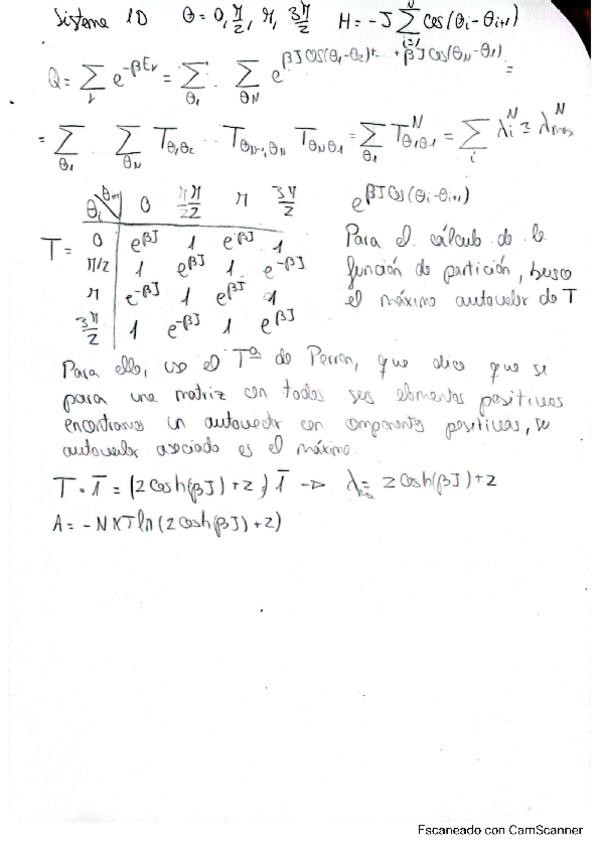 Sistema 1D θ = 0, π/2, π, 3π/2 H = -J ∑_{i=1}^{N} cos(θi - θi+1)
Q = ∑_r e^{-βEr} = ∑_{θ1} .. ∑_{θN} e^{βJ cos(θ1-θ2) + .. + βJ cos(θN-θ1)} =
= ∑_{θ1} .. ∑_{θN} T_{θ1θ2} .. T_{θN-1,θN} T_{θNθ1} = ∑_{θ1} T^N_{θ1θ1} = ∑_i λi^N ≅ λmax^N
θi \ θi+1 0 π/2 π 3π/2 e^{βJ cos(θi-θi+1)}
T = 0 e^{βJ} 1 e^{-βJ} 1 Para el cálculo de la
π/2 1 e^{βJ} 1 e^{-βJ} función de partición, busco
π e^{-βJ} 1 e^{βJ} 1 el máximo autovalor de T
3π/2 1 e^{-βJ} 1 e^{βJ}
Para ello, uso el Tª de Perron, que dice que si
para una matriz con todos sus elementos positivos
encontramos un autovector con componentes positivas, su
autovalor asociado es el máximo.
T · 1̄ = (2cosh(βJ) + 2) 1̄ → λmax = 2cosh(βJ) + 2
A = -NKT ln(2cosh(βJ) + 2)
Escaneado con CamScanner